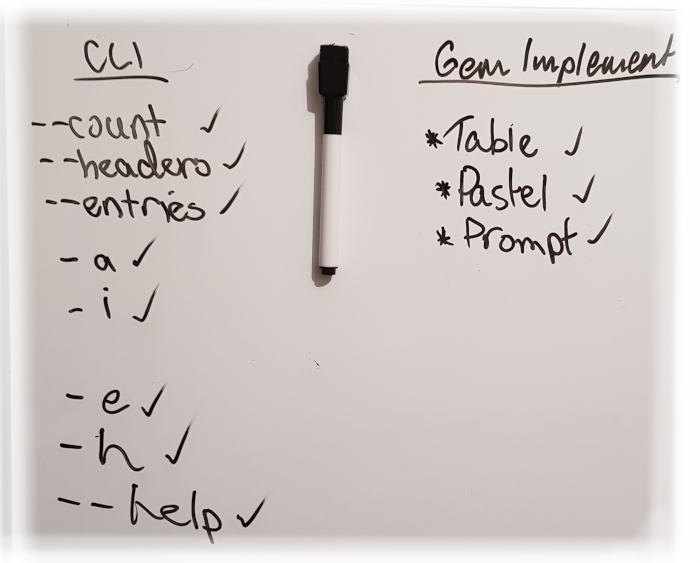 CLI
--count ✓
--headers ✓
--entries ✓
- a ✓
- i ✓
- e ✓
- h ✓
-- help ✓
Gem Implement
* Table ✓
* Pastel ✓
* Prompt ✓